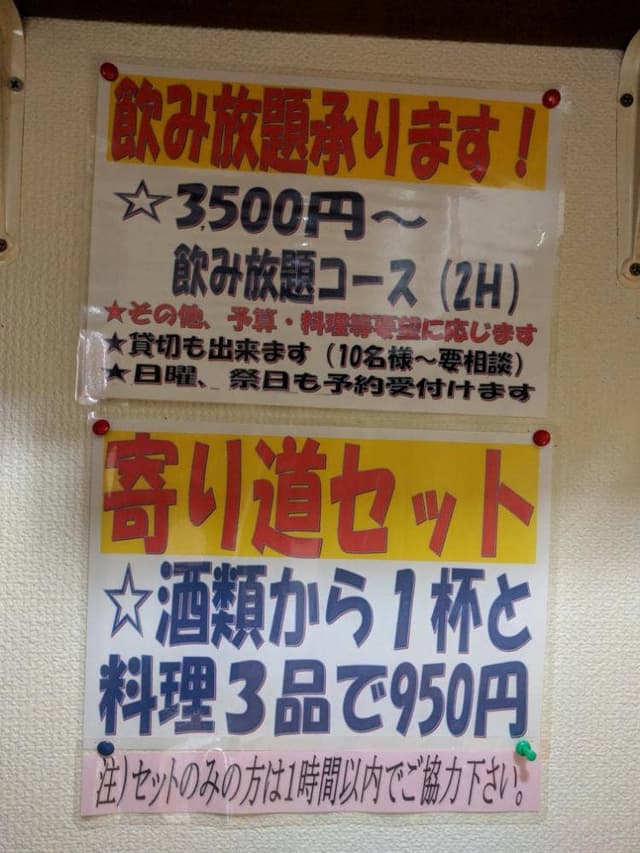 飲み放題承ります！
☆3,500円～
飲み放題コース（2H）
★その他、予算・料理等要望に応じます
★貸切も出来ます（10名様～要相談）
★日曜、祭日も予約受付けます
寄り道セット
☆酒類から１杯と
料理３品で950円
注）セットのみの方は1時間以内でご協力下さい。